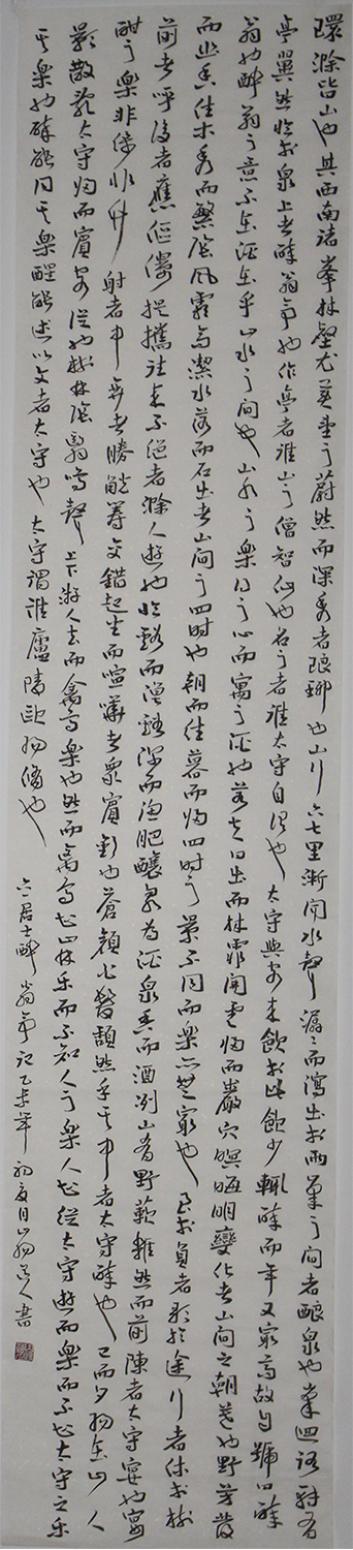 環滁皆山也其西南諸峯林壑尤美望之蔚然而深秀者琅琊也山行六七里漸聞水聲潺潺而瀉出於兩峯之間者釀泉也峯迴路轉有
亭翼然臨於泉上者醉翁亭也作亭者誰山之僧智仙也名之者誰太守自謂也太守與客來飲於此飲少輒醉而年又最高故自號曰醉
翁也醉翁之意不在酒在乎山水之間也山水之樂得之心而寓之酒也若夫日出而林霏開雲歸而巖穴暝晦明變化者山間之朝暮也野芳發
而幽香佳木秀而繁陰風霜高潔水落而石出者山間之四時也朝而往暮而歸四時之景不同而樂亦無窮也至於負者歌於途行者休於樹
前者呼後者應傴僂提攜往來不絕者滁人遊也臨谿而漁谿深而漁肥釀泉為酒泉香而酒洌山肴野蔌雜然而前陳者太守宴也宴
酣之樂非絲非竹射者中弈者勝觥籌交錯起坐而喧譁者眾賓歡也蒼顏白髮頹然乎其中者太守醉也已而夕陽在山人
影散亂太守歸而賓客從也樹林陰翳鳴聲上下游人去而禽鳥樂也然而禽鳥知山林樂而不知人之樂人知從太守遊而樂而不知太守之樂
其樂也醉能同其樂醒能述以文者太守也太守謂誰廬陵歐陽脩也
六一居士醉翁亭記乙未年初夏月山人書